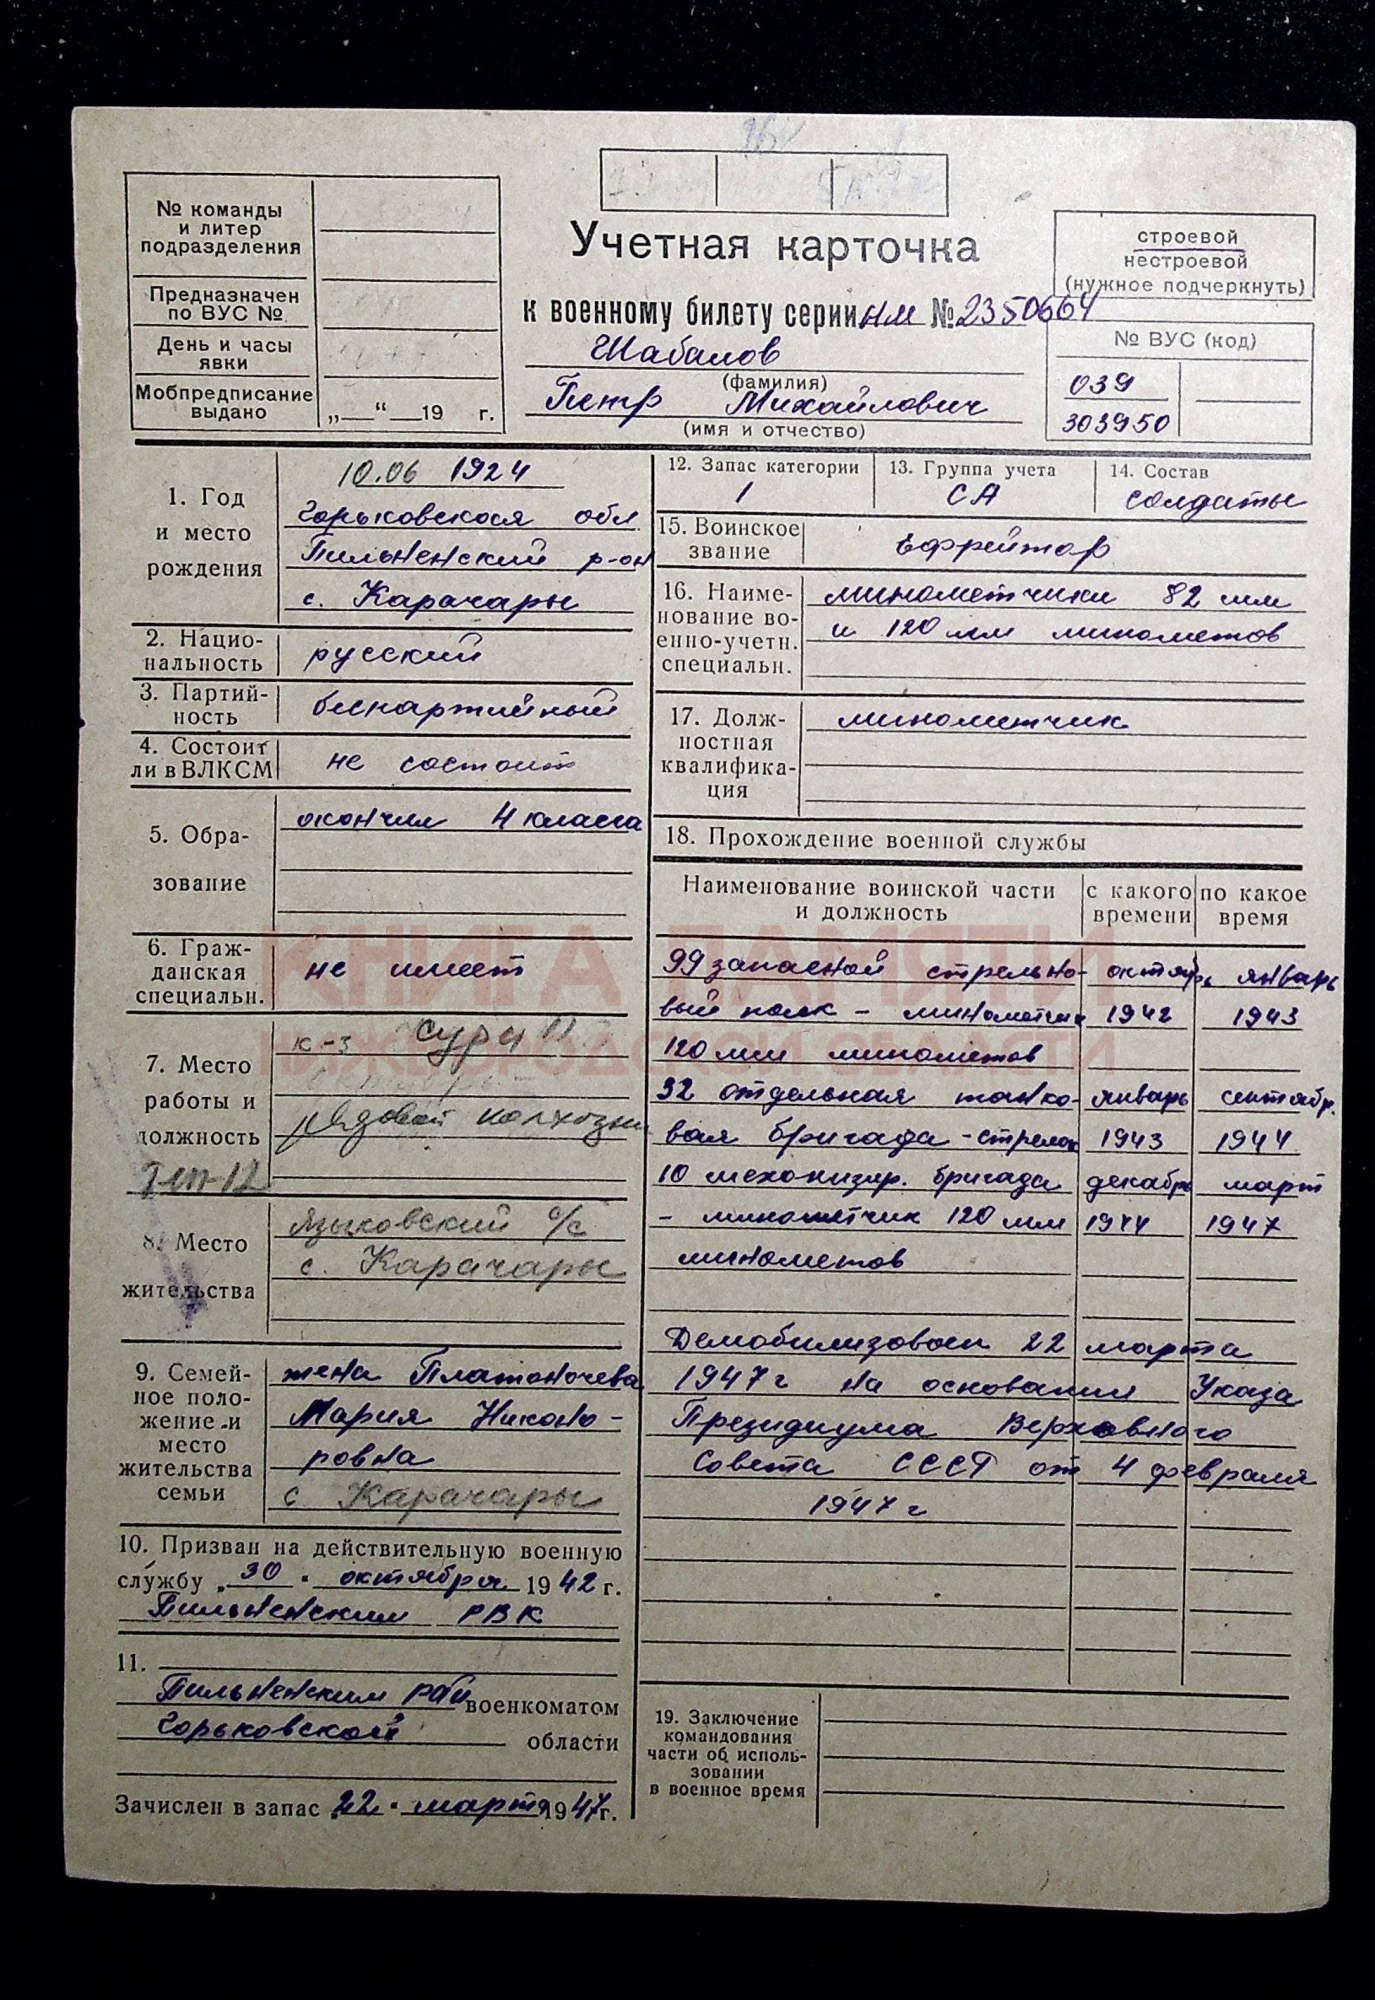 № команды
и литер
подразделения
Предназначен
по ВУС №
День и часы
явки
Мобпредписание
выдано
„ “ 19 г.
Учетная карточка
к военному билету серии НМ № 2350664
Шабалов
(фамилия)
Петр Михайлович
(имя и отчество)
строевой
нестроевой
(нужное подчеркнуть)
№ ВУС (код)
039
303950
1. Год
и место
рождения
10.06 1924
Горьковская обл.
Пильненский р-он
с. Карачары
2. Нацио-
нальность
русский
3. Партий-
ность
беспартийный
4. Состоит
ли в ВЛКСМ
не состоит
5. Обра-
зование
окончил 4 класса
6. Граж-
данская
специальн.
не имеет
7. Место
работы и
должность
к-з
рядовой
8. Место
жительства
Языковский с/с
с. Карачары
9. Семей-
ное поло-
жение и
место
жительства
семьи
жена Платоночева
Мария Никоно-
ровна
с. Карачары
10. Призван на действительную военную
службу „30“ октября 1942 г.
Пильненским РВК
11.
Пильненским рай военкоматом
Горьковской области
Зачислен в запас 22 марта 1947 г.
12. Запас категории
1
13. Группа учета
СА
14. Состав
солдаты
15. Воинское
звание
Ефрейтор
16. Наиме-
нование во-
енно-учетн.
специальн.
минометчики 82 мм
и 120 мм минометов
17. Долж-
ностная
квалифика-
ция
минометчик
18. Прохождение военной службы
Наименование воинской части
и должность
с какого
времени
по какое
время
99 запасной стрелко- октябрь январь
вый полк - минометчик 1942 1943
120 мм минометов
32 отдельная танко- январь сентябр.
вая бригада - стрелок 1943 1944
10 механизир. бригада декабрь март
- минометчик 120 мм 1944 1947
минометов
Демобилизован 22 марта
1947 г на основании Указа
Президиума Верховного
Совета СССР от 4 февраля
1947 г
19. Заключение
командования
части об исполь-
зовании
в военное время
КНИГА ПАМЯТИ
НИЖЕГОРОДСКОЙ ОБЛАСТИ